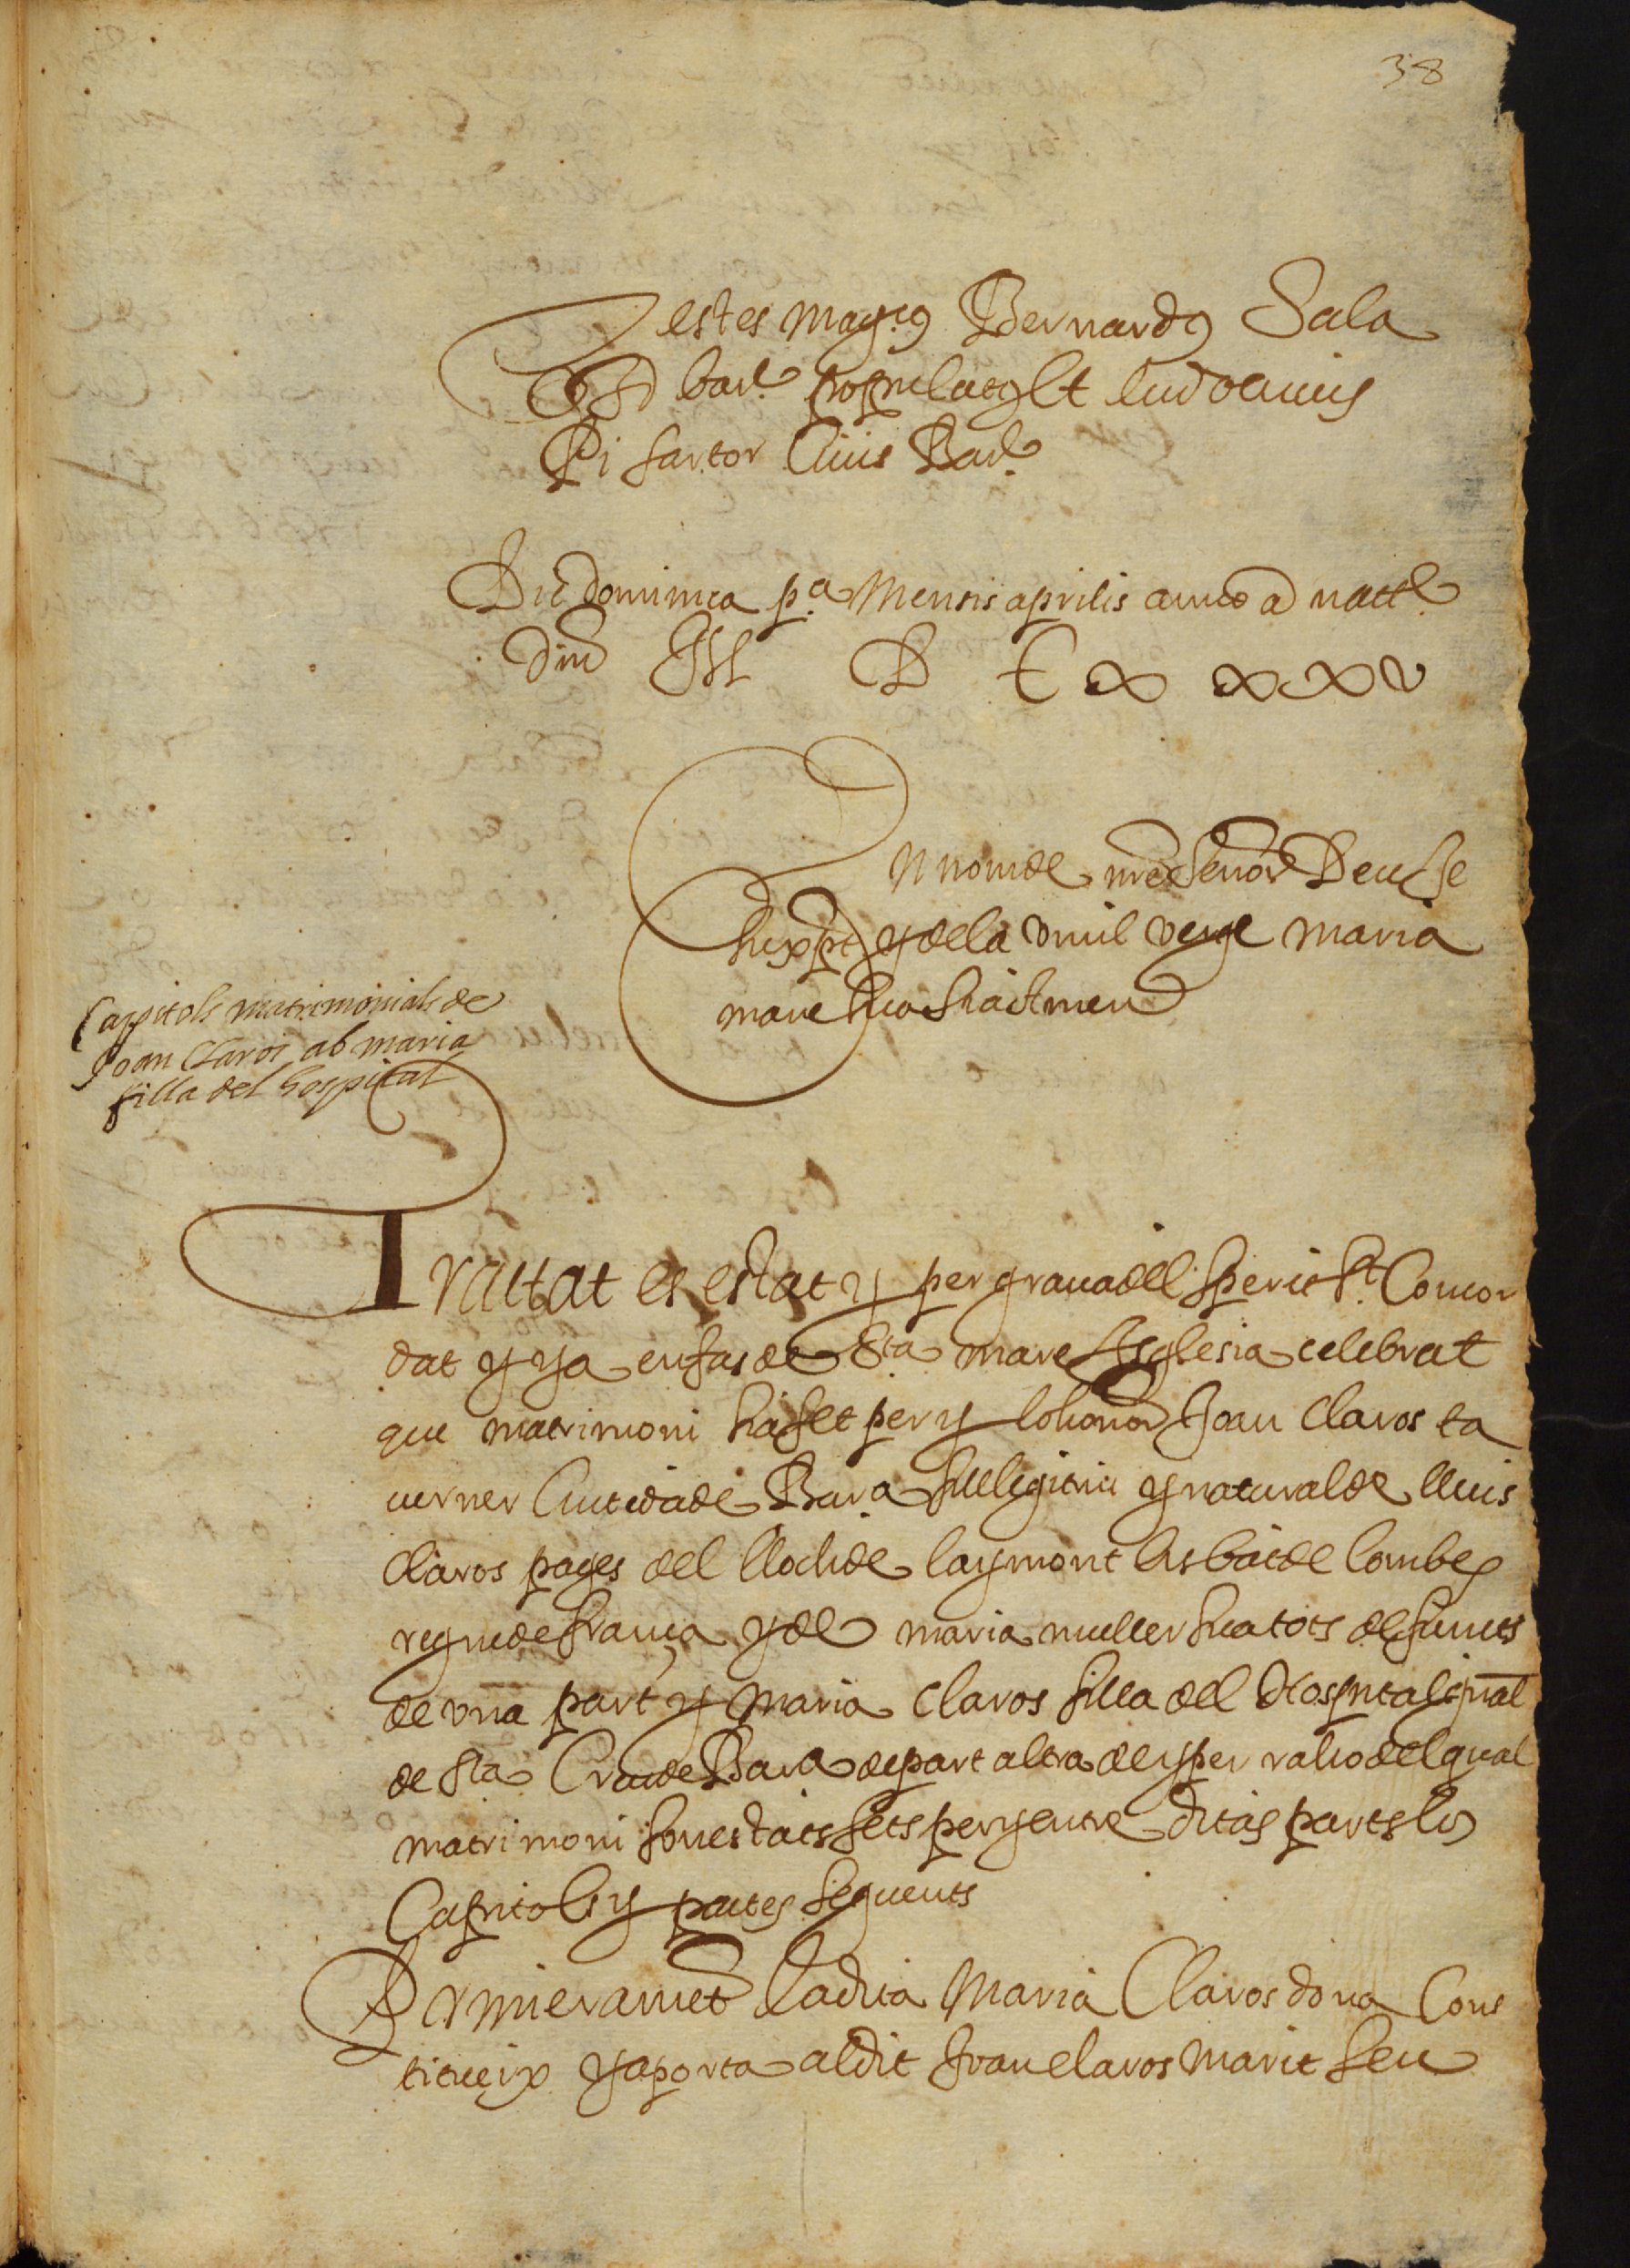 38
Testes magcs Bernardus Sala
Bar. populatus et ludovicus
Pi sartor Civis Bar.
Die dominica pa. Mensis aprilis anno a natte.
dni M D C xx xxxv
En nom de nre Senor Deu Je
su xpt y de la vmil verge Maria
mare sua sia Amen
Cappitols matrimonials de
Joan Claros ab maria
filla del hospital
Tractat es estat y per gra va del Sperit St. Concor
dat y ya en fas de Sta mare Asglesia celebrat
que matrimoni sia fet per y lo honor Joan Claros ta
uerner Ciutada de Bara fill legitim y natural de lluis
Claros pages del lloch de laymont bisbat de Combes
regne de França y de maria muller sua tots defuncts
de vna part y Maria Claros filla del Hospital gnal
de Sta Creu de Bara de part altra de y per raho del qual
matrimoni son estats fets per y entre ditas parts los
Capitols y pactes seguents
Primerament la dita Maria Claros dona Cons
titueix y aporta al dit Joan claros Marit seu